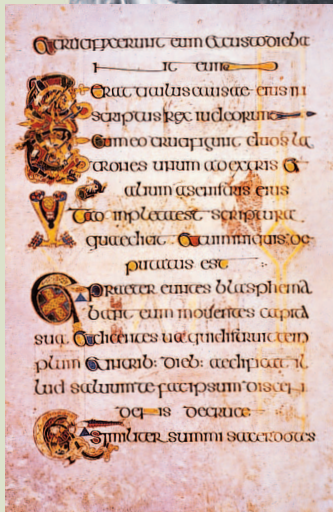 Et crucifxerunt eum et custodieba
nt eum
Et erat titulus causae eius in
scriptus rex iudeorum
Et cum eo crucifigunt duos la
trones unum adextris et
alium asinistris eius
inpleta est scriptura
quae dicit et cum iniquis de
putatus est
Et praeter euntes blasphema
bant eum mouentes capita
sua et dicentes ua qui distruit tem
plum et intrib: dieb: aedificat il
lud saluum te fac ipsum discen
decruce
Similiter summi sacerdotes